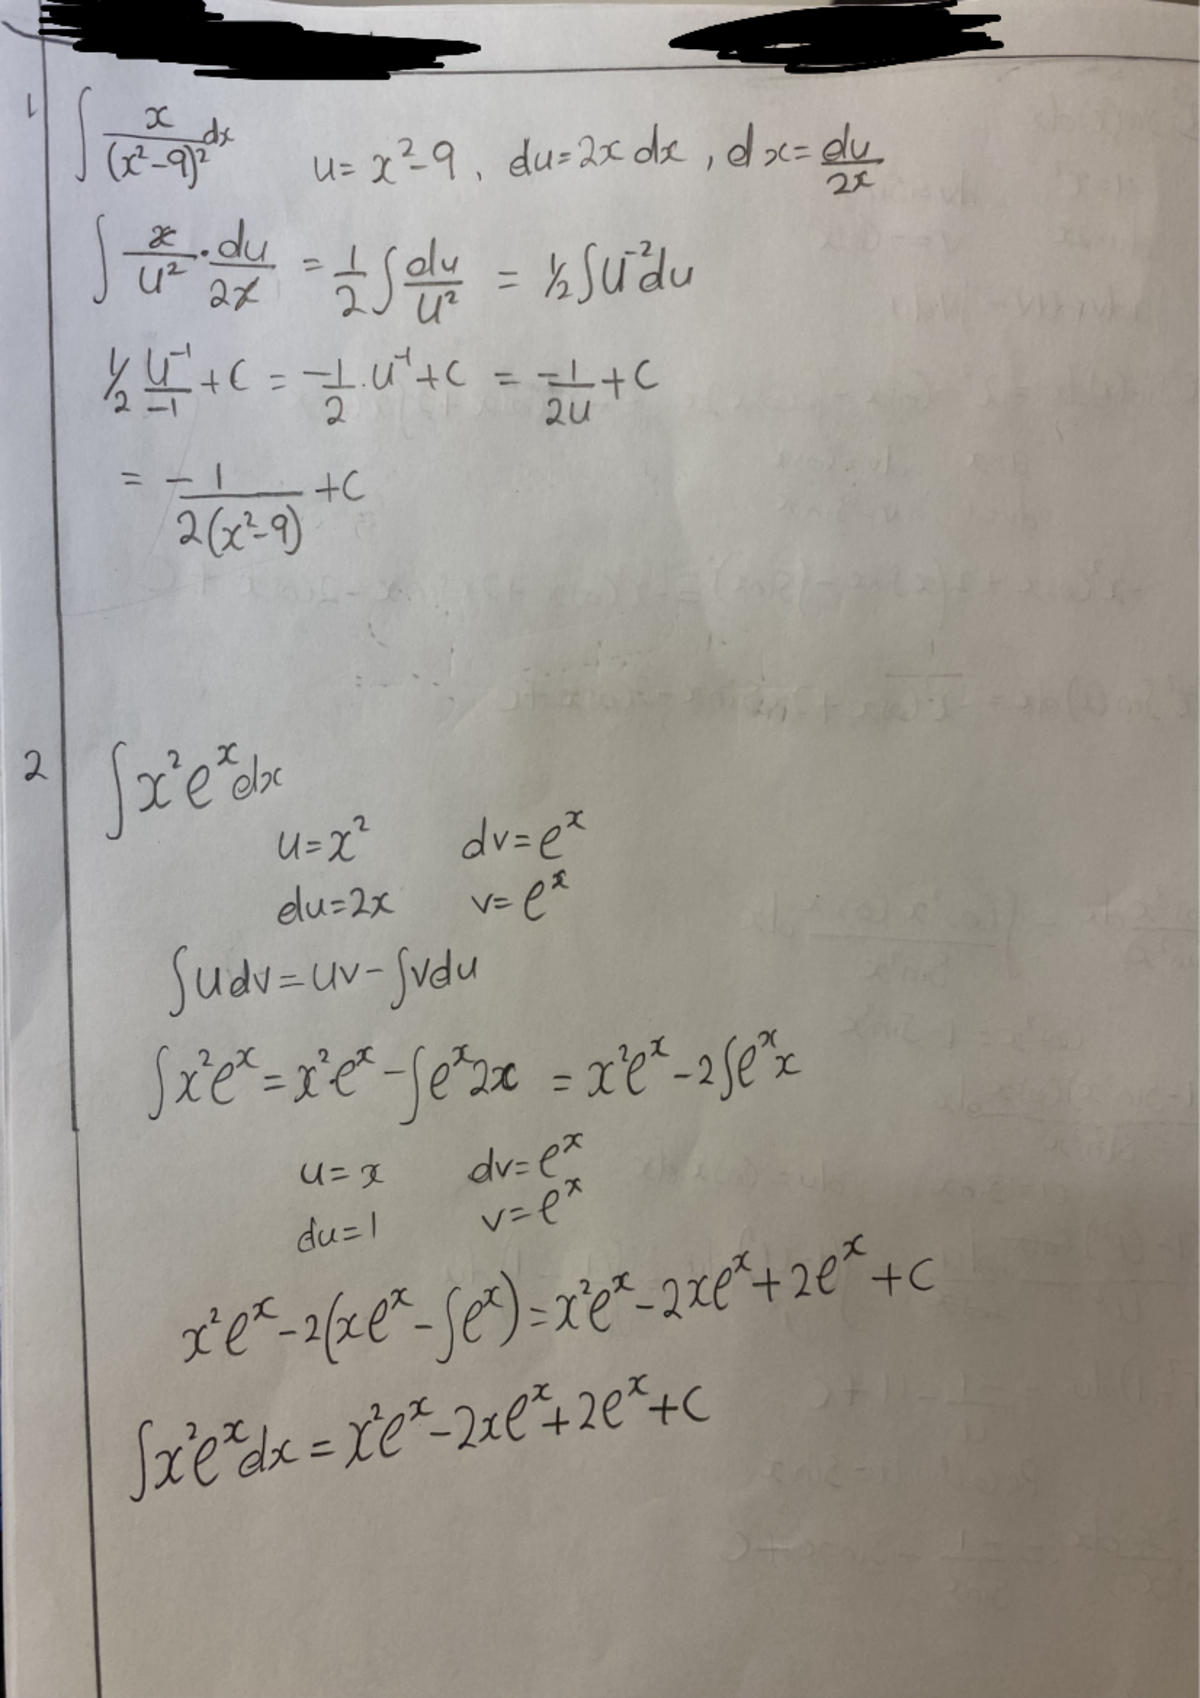 1 ∫ x/(x²-9)² dx   u = x²-9, du = 2x dx, dx = du/2x
∫ x/u² · du/2x = 1/2 ∫ du/u² = 1/2 ∫ u⁻² du
1/2 u⁻¹/-1 + C = -1/2 · u⁻¹ + C = -1/2u + C
= -1/2(x²-9) + C
2 ∫ x²eˣ dx
u = x²   dv = eˣ
du = 2x   v = eˣ
∫ u dv = uv - ∫ v du
∫ x²eˣ = x²eˣ - ∫ eˣ 2x = x²eˣ - 2∫ eˣ x
u = x   dv = eˣ
du = 1   v = eˣ
x²eˣ - 2(xeˣ - ∫ eˣ) = x²eˣ - 2xeˣ + 2eˣ + C
∫ x²eˣ dx = x²eˣ - 2xeˣ + 2eˣ + C